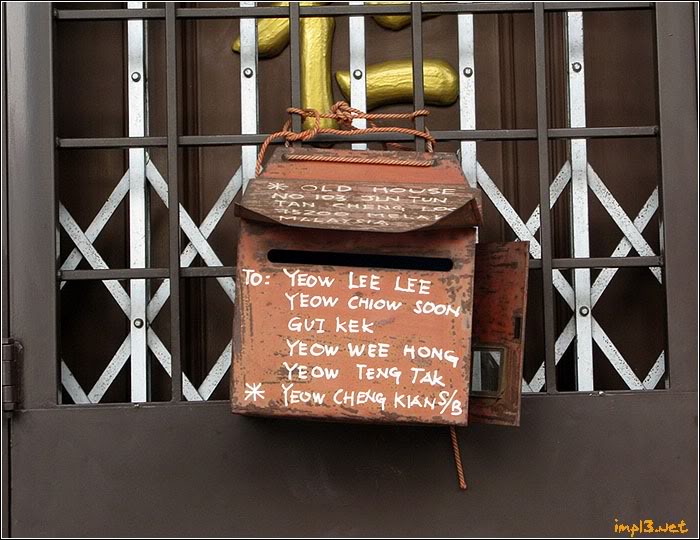 * OLD HOUSE
NO 103 JLN TUN
TAN CHENG LOCK
75200 MELAKA
TO: YEOW LEE LEE
YEOW CHIOW SOON
GUI KEK
YEOW WEE HONG
YEOW TENG TAK
* YEOW CHENG KIAN S/B
impl3.net